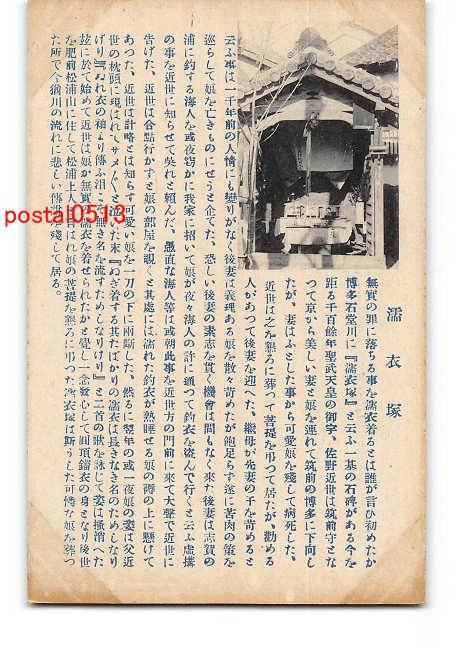 濡衣塚
無實の罪に落ちる事を濡衣着るとは誰が言ひ初めたか
博多石堂川に『濡衣塚』と云ふ一基の石碑がある今を
距る千百餘年聖武天皇の御宇、佐野近世は筑前守とな
つて京から美しい妻と娘を連れて筑前の博多に下向し
たが、妻はふとした事から可愛娘を殘して病死した、
近世は之を懇ろに葬つて菩提を弔つて居たが、勸める
人があつて後妻を迎へた、繼母が先妻の子を苛めると
云ふ事は一千年前の人情にも變りがなく後妻は義理ある娘を散々苛めたが飽足らず遂に苦肉の策を
巡らして娘を亡きものにせうと企てた、恐しい後妻の素志を貫く機會は間もなく來た後妻は志賀の
浦に釣する海人を或夜窃かに我家に招いて娘が夜々海人の許に通つて釣衣を盗んで行くと云ふ虚搆
の事を近世に知らせて吳れと賴んだ、愚直な海人等は或朝此事を近世方の門前に來て大聲で近世に
告げた、近世は合點行かずと娘の部屋を覗くと其處には濡れた釣衣が熟睡せる娘の褥の上に懸けて
あつた、近世は計略とは知らず可愛い娘を一刀の下に兩斷した、然るに翌年の或一夜娘の姿は父近
世の枕頭に現はれてサメ〴〵と泣いた末『ぬぎ着する其たばかりの濡衣は長きなき名のためしなり
けり』『ぬれ衣の袖より傳ふ泪こそ無き名を流すためしなりけり』と二首の歌を詠じて姿は掻消へた
玆に於て始めて近世は娘が無實の濡衣を着せられたかと覺し一念發心して圓頂緇衣の身となり後世
を肥前松浦山に住して松浦上人と言はれ娘の菩提を懇ろに弔つた濡衣塚は斯うした可憐な娘を葬つ
た所で今猶川の流れに悲しい傳説を殘して居る。
postal0513